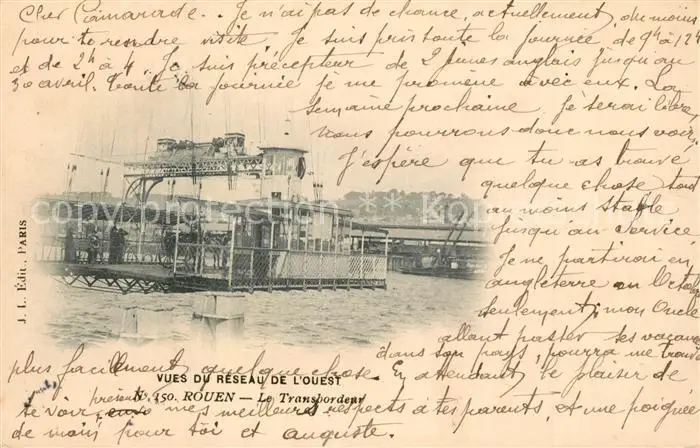 Cher Camarade. Je n'ai pas de chance, actuellement, du moins
pour te rendre visite. Je suis pris toute la journée, de 9h à 12h
et de 2h à 4. Je suis précepteur de 2 jeunes anglais jusqu'au
30 avril. Toute la journée je me promène avec eux. La
semaine prochaine, je serai libre,
nous pourrons donc nous voir.
J'espère que tu as trouvé
quelque chose tout
au moins stable
jusqu'au service
Je ne partirai en
angleterre en Octobre
seulement; mon Oncle
allant passer ses vacances
dans son pays, pourra me trouver
plus facilement quelque chose. En attendant le plaisir de
te voir, présente mes meilleurs respects à tes parents, et une poignée
de mains pour toi et auguste.
J. L. Édit. PARIS
VUES DU RÉSEAU DE L'OUEST
N° 150. ROUEN — Le Transbordeur